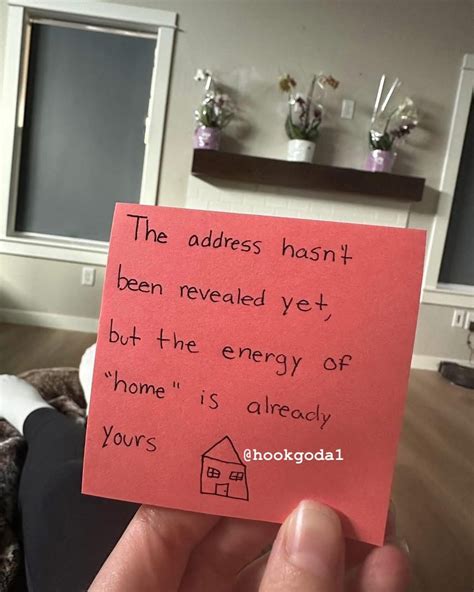 The address hasn't
been revealed yet,
but the energy of
"home" is already
yours
@hookgoda1